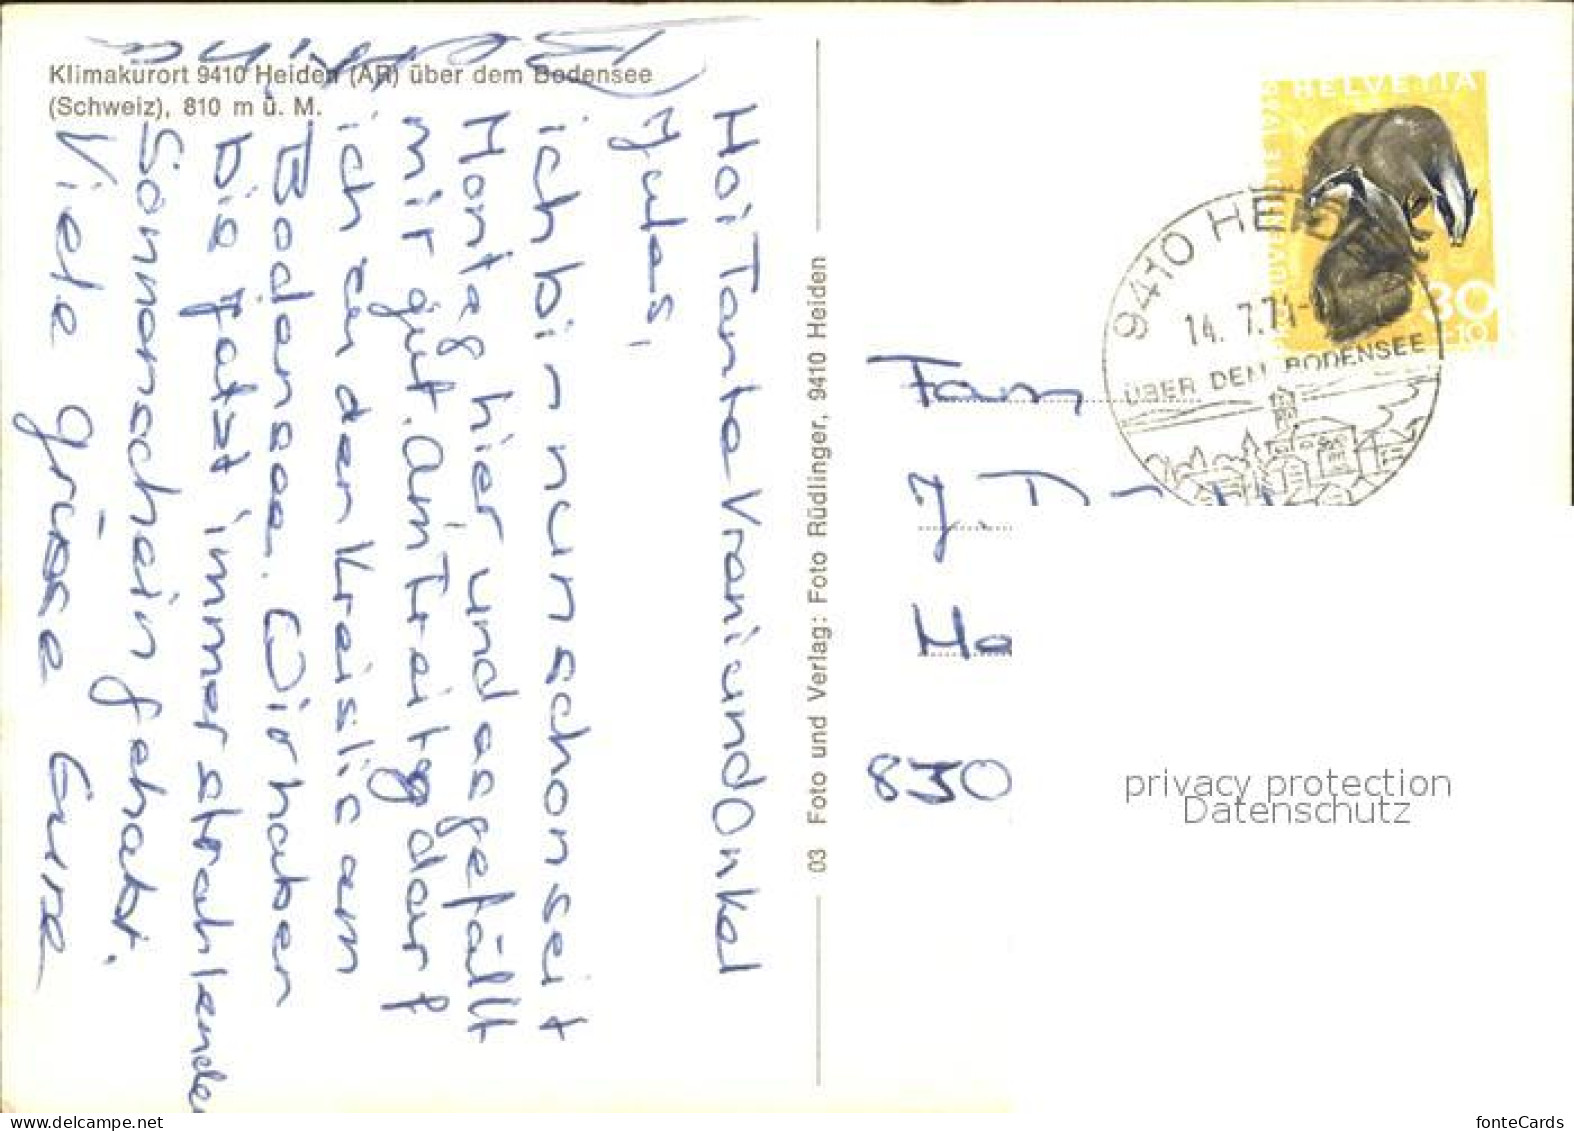 Klimakurort 9410 Heiden (AR) über dem Bodensee
(Schweiz), 810 m ü. M.
Hoi Tante Vroni und Onkel
Jules,
ich bin nun schon seit
Montag hier und es gefällt
mir gut. Am Freitag darf
ich an den Kreislicam
Bodensee. Wir haben
bis fatst immer strahlenden
Sonnenschein gehabt.
Viele Grüsse Eure
03 Foto und Verlag: Foto Rüdlinger, 9410 Heiden
HELVETIA
30
+10
9410 HEIDEN
14. 7.71
ÜBER DEM BODENSEE
Fam
J.
Ho
830
privacy protection
Datenschutz
delcampe.net
fonteCards